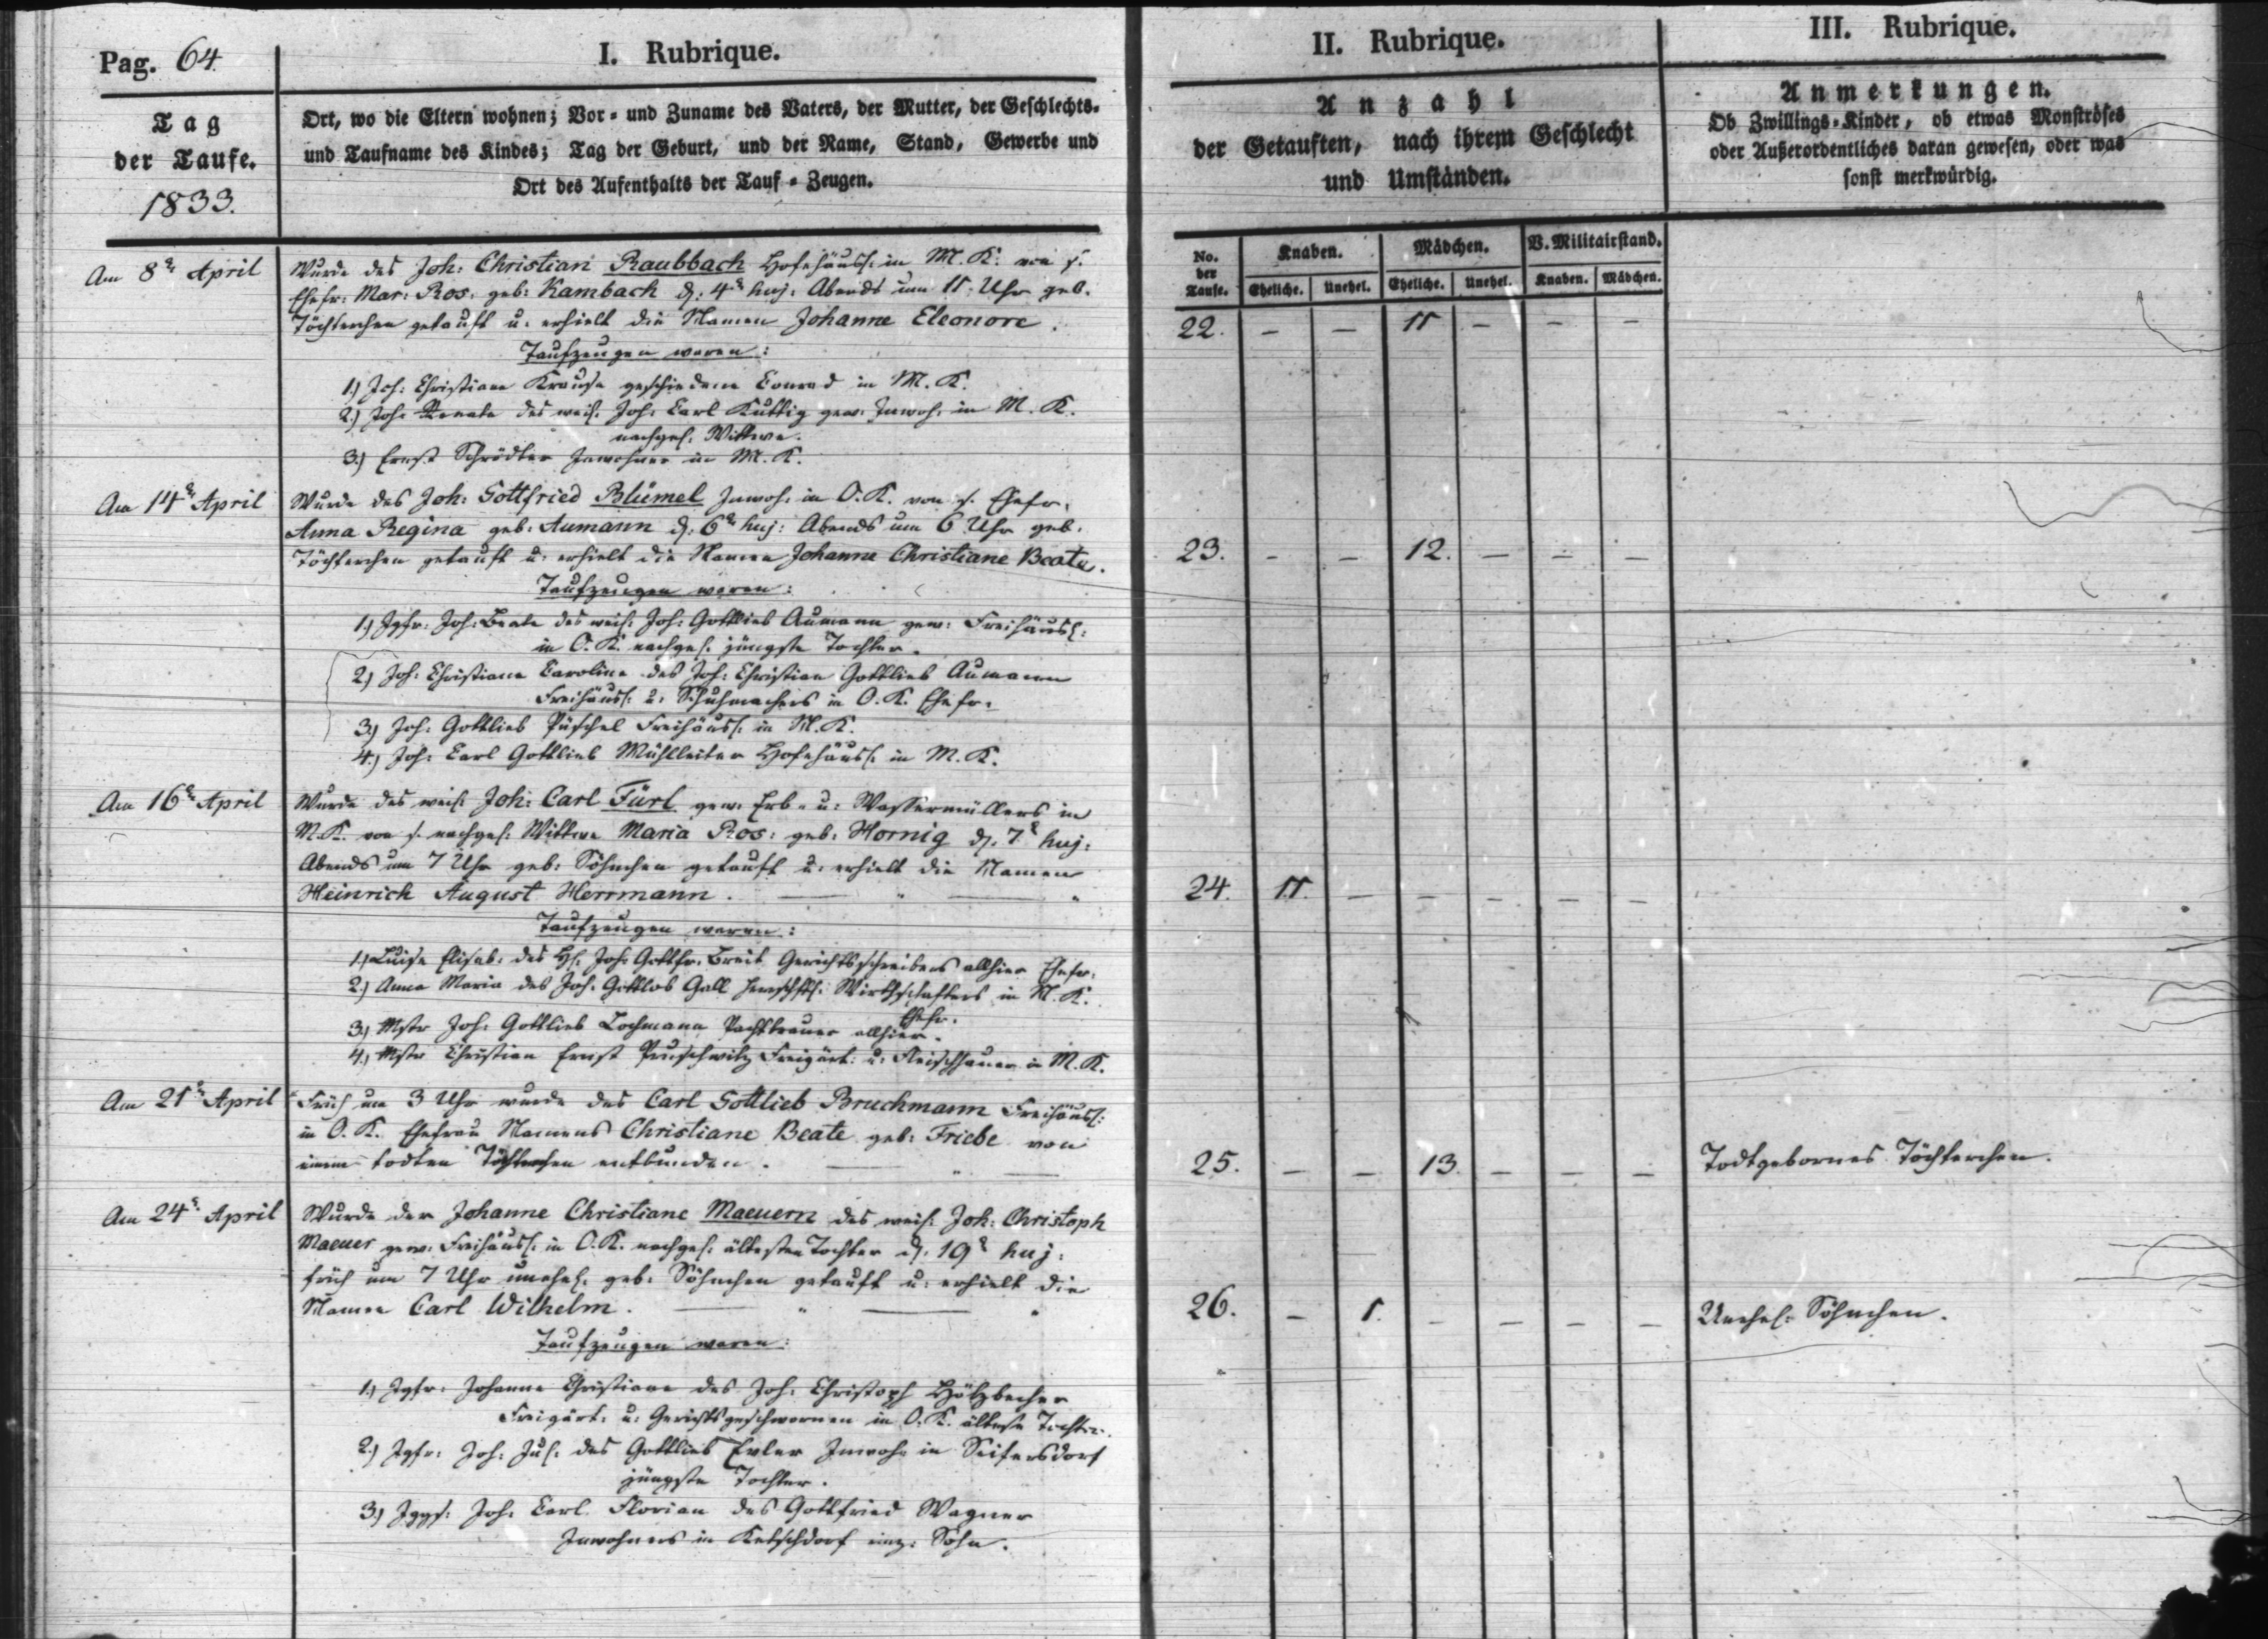 Pag. 64.
I. Rubrique.
Tag
der Taufe.
1833.
Ort, wo die Eltern wohnen; Vor- und Zuname des Vaters, der Mutter, der Geschlechts-
und Taufname des Kindes; Tag der Geburt, und der Name, Stand, Gewerbe und
Ort des Aufenthalts der Tauf-Zeugen.
II. Rubrique.
Anzahl
der Getauften, nach ihrem Geschlecht
und Umständen.
III. Rubrique.
Anmerkungen.
Ob Zwillings-Kinder, ob etwas Monströses
oder Außerordentliches daran gewesen, oder was
sonst merkwürdig.
No. der Taufe.
Knaben.
Mädchen.
V. Militairstand.
Eheliche. Unehel. Eheliche. Unehel. Knaben. Mädchen.
Am 8t April
Wurde des Joh: Christian Raubbach Hofehäusl: in M. K. von s.
Ehefr: Mar: Ros: geb: Kambach d: 4t huj: Abends um 11 Uhr geb.
Töchterchen getauft u: erhielt die Namen Johanne Eleonore.
22. – – 11 – – –
Taufzeugen waren:
1.) Joh: Christiane Krause geschiedene Conrad in M. K.
2.) Joh: Renate des weil: Joh: Carl Kuttig gew: Inwoh: in M. K.
nachgel: Wittwe.
3.) Ernst Schrödter Inwohner in M. K.
Am 14t April
Wurde des Joh: Gottfried Blümel Inwoh: in O. K. von s. Ehefr:
Anna Regina geb: Aumann d: 6t huj: Abends um 6 Uhr geb.
Töchterchen getauft u: erhielt die Namen Johanne Christiane Beate.
23. – – 12. – – –
Taufzeugen waren:
1.) Jgfr: Joh: Beate des weil: Joh: Gottlieb Aumann gew: Freihäusl:
in O. K. nachgel: jüngste Tochter.
2.) Joh: Christiane Caroline des Joh: Christian Gottlieb Aumann
Freihäusl: u: Schuhmachers in O. K. Ehefr:
3.) Joh: Gottlieb Püschel Freihäusl: in M. K.
4.) Joh: Carl Gottlieb Mühlleiter Hofehäusl: in M. K.
Am 16t April
Wurde des weil: Joh: Carl Fürl gew: Erb- u: Wassermüllers in
M. K. von s. nachgel: Wittwe Maria Ros: geb: Hornig d: 7t huj:
Abends um 7 Uhr geb: Söhnchen getauft u: erhielt die Namen
Heinrich August Herrmann.
24. 11. – – – – –
Taufzeugen waren:
1.) Luise Elisab: des H: Joh: Gottfr: Breit Gerichtsschreibers allhier Ehefr:
2.) Anna Maria des Joh: Gottlob Gall Wirthschafters in M. K.
Ehefr.
3.) Mstr Joh: Gottlieb Lochmann Pachtbrauer allhier.
4.) Mstr Christian Ernst Pruschwitz Freigärt: u: Fleischhauer in M. K.
Am 21t April
Früh um 3 Uhr wurde des Carl Gottlieb Bruchmann Freihäusl:
in O. K. Ehefrau Namens Christiane Beate geb: Friebe von
einem todten Töchterchen entbunden.
25. – – 13. – – – Todtgebornes Töchterchen.
Am 24t April
Wurde der Johanne Christiane Maeuern des weil: Joh: Christoph
Maeuer gew: Freihäusl: in O. K. nachgel: ältesten Tochter d: 19t huj:
früh um 7 Uhr unehel: geb: Söhnchen getauft u: erhielt die
Namen Carl Wilhelm.
26. – 1. – – – – Unehel: Söhnchen.
Taufzeugen waren:
1.) Jgfr: Johanne Christiane des Joh: Christoph Hölzbecher
Freigärt: u: Gerichtsgeschwornen in O. K. älteste Tochter.
2.) Jgfr: Joh: Jul: des Gottlieb Exler Inwoh: in Seifersdorf
jüngste Tochter.
3.) Jggs: Joh: Carl Florian des Gottfried Wagner
Inwohners in Ketschdorf einz: Sohn.